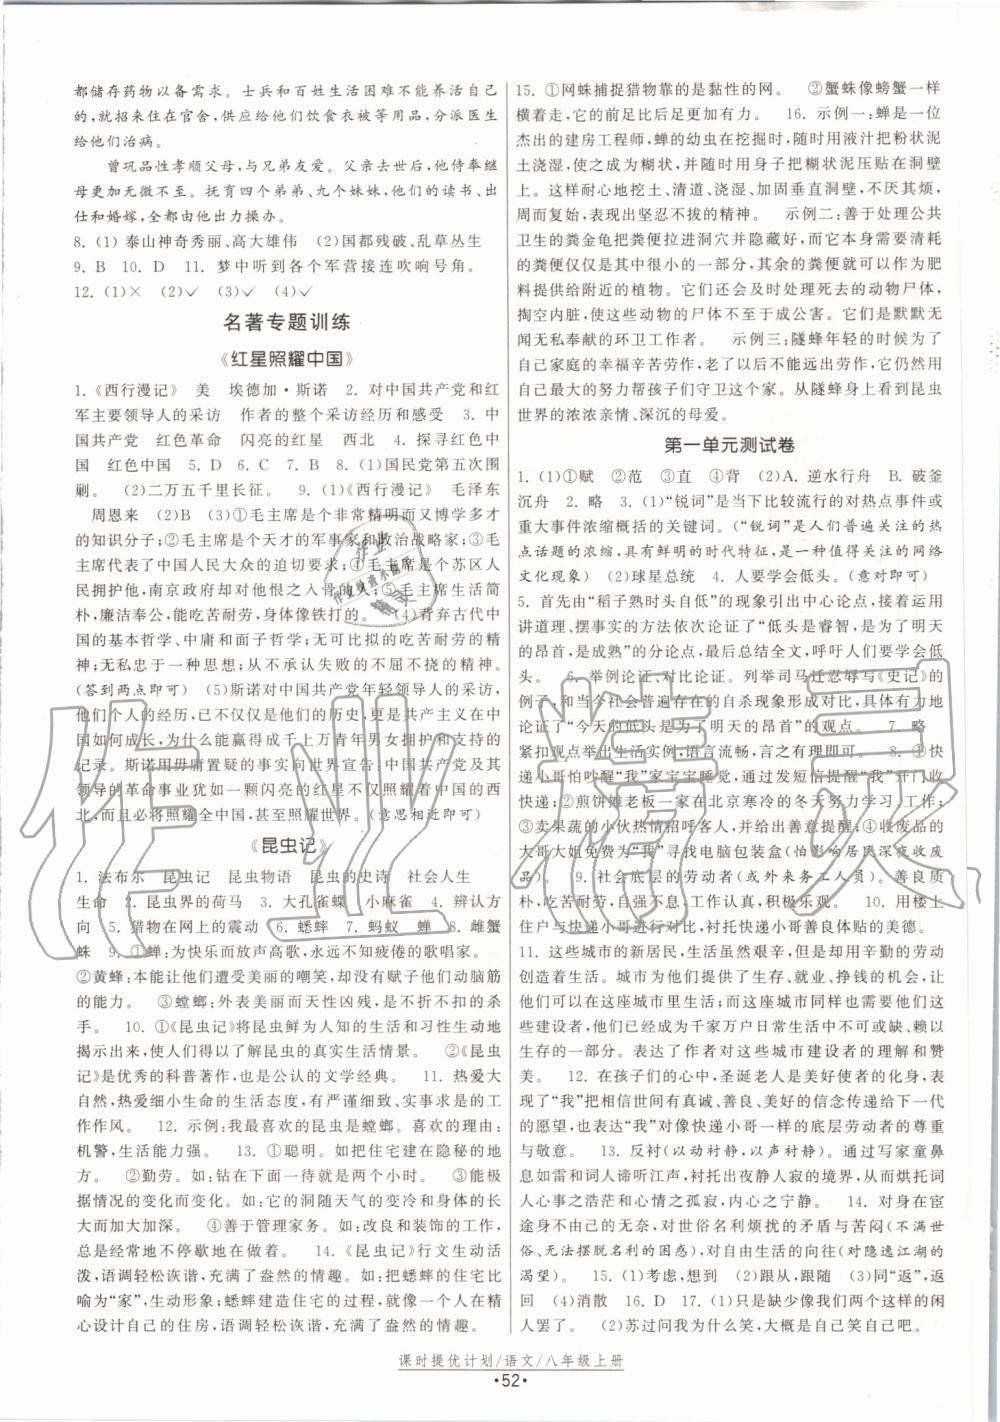 都储存药物以备需求。士兵和百姓生活艰难不能养活自己的,
就招来住在官舍,供应给他们饮食衣被等用品,分派医生
给他们治病。
曾巩品性孝顺父母,与兄弟友爱。父亲去世后,他侍奉继
母更加无微不至。抚育四个弟弟、九个妹妹,他们的读书、出
仕和婚嫁,全都由他出力操办。
8. (1) 泰山神奇秀丽、高大雄伟 (2)国都残破、乱草丛生
9. B 10. D 11. 梦中听到各个军营接连吹响号角。
12. (1)× (2)✓ (3)✓ (4)✓
名著专题训练
《红星照耀中国》
1.《西行漫记》 美 埃德加·斯诺 2. 对中国共产党和红
军主要领导人的采访 作者的整个采访经历和感受 3. 中
国共产党 红色革命 闪亮的红星 西北 4. 探寻红色中
国 红色中国 5. D 6. C 7. D 8. (1)国民党第五次围
剿。 (2)二万五千里长征。 9. (1)《西行漫记》 毛泽东
周恩来 (2)B (3)①毛主席是个非常精明而又博学多才
的知识分子;②毛主席是个天才的军事家和政治战略家;③他
代表了中国人民大众的迫切要求;④毛主席是个苏区人民
拥护他,南京政府却对他恨之入骨的人。⑤毛主席生活俭
朴,廉洁奉公,能吃苦耐劳,身体像铁打的。 (4)背弃古代中
国的基本哲学、中庸和面子哲学;无可比拟的吃苦耐劳的精神;
无私忠于一种思想;从不承认失败的不屈不挠的精神。
(答到两点即可) (5)斯诺对中国共产党年轻领导人的采访,
他们个人的经历,已不仅仅是他们的历史,更是共产主义在中国
如何成长,为什么能赢得成千上万青年男女拥护和支持的
记录。斯诺用毋庸置疑的事实向世界宣告:中国共产党及其
领导的革命事业犹如一颗闪亮的红星不仅照耀着中国的西
北,而且必将照耀全中国,甚至照耀世界。(意思相近即可)
《昆虫记》
1. 法布尔 昆虫记 昆虫物语 昆虫的史诗 社会人生
生命 2. 昆虫界的荷马 3. 大孔雀蝶 小麻雀 4. 辨认方
向 5. 猎物在网上的震动 6. 蟋蟀 7. 蚂蚁 蝉 8. 雌蟹
蛛 9. ①蝉:为快乐而放声高歌,永远不知疲倦的歌唱家。
②黄蜂:本能让他们遭受美丽的嘲笑,却没有赋予他们动脑筋
的能力。 ③螳螂:外表美丽而天性凶残,是不折不扣的杀
手。 10. ①《昆虫记》将昆虫鲜为人知的生活和习性生动地
揭示出来,使人们得以了解昆虫的真实生活情景。 ②《昆虫
记》是优秀的科普著作,也是公认的文学经典。 11. 热爱大
自然,热爱细小生命的生活态度,有严谨细致、实事求是的工
作作风。 12. 示例:我最喜欢的昆虫是螳螂。喜欢的理由:
机警,生活能力强。 13. ①聪明。如:把住宅建在隐秘的地
方。 ②勤劳。如:钻在下面一待就是两个小时。 ③能根
据情况的变化而变化。如:它的洞随天气的变冷和身体的长
大而加大加深。 ④善于管理家务。如:改良和装饰的工作,
总是经常地不停歇地在做着。 14.《昆虫记》行文生动活
泼,语调轻松诙谐,充满了盎然的情趣。如:把蟋蟀的住宅比
喻为“家”,生动形象;蟋蟀建造住宅的过程,就像一个人在精
心设计自己的住房,语调轻松诙谐,充满了盎然的情趣。
15. ①网蛛捕捉猎物靠的是黏性的网。 ②蟹蛛像螃蟹一样
横着走,它行走的样子很像螃蟹。 16. 示例一:蝉是一位
杰出的建房工程师,蝉的幼虫在挖掘时,随时用液汁把粉状泥
土浇湿,使之成为糊状,并随时用身子把糊状泥压贴在洞壁
上。这样耐心地挖土、清道、浇湿、加固垂直洞壁,不厌其烦,
周而复始,表现出坚忍不拔的精神。 示例二:善于处理公共
卫生的粪金龟把粪便拉进洞穴并储存好,而它们需要消耗
的粪便仅仅是其中很小的一部分,其余的粪便,它们都作为肥
料提供给附近的植物。它们还及时处理死去的动物尸体,
掏空内脏,使这些动物的尸体不至于成公害。它们是默默无
闻无私奉献的环卫工作者。 示例三:隧蜂年轻的时候为了
自己家庭的幸福辛苦劳作,老了以后不能劳作,它仍然用自己
最大的努力帮孩子们守卫这个家。从隧蜂身上看到昆虫
世界的浓浓亲情、深沉的母爱。
第一单元测试卷
1. (1)①赋 ②范 ③直 ④背 (2)A. 逆水行舟 B. 破釜
沉舟 2. 略 3. (1)“锐词”是当下比较流行的对热点事件或
重大事件浓缩概括的关键词。(“锐词”是人们普遍关注的热
点话题的浓缩,具有鲜明的时代特征,是一种值得关注的网络
文化现象) (2)球星总统 4. 人要学会低头。(意对即可)
5. 首先由“稻子熟时头自低”的现象引出中心论点,接着运用
讲道理、摆事实的方法依次论证了“低头是睿智,是为了明天
的昂首,是成熟”的分论点,最后总结全文,呼吁人们要学会低
头。 6. 举例论证、对比论证。列举司马迁忍辱写《史记》的
例子,和当今社会普遍存在的自杀现象形成对比,具体有力地
论证了“今天的低头是为了明天的昂首”的观点。 7. 略
紧扣观点举出生活实例,语言流畅,言之有理即可。 8. ①快
递小哥怕吵醒“我”家宝宝睡觉,通过发短信提醒“我”开门收
快递;②煎饼摊老板一家在北京寒冷的冬天努力学习、工作;
③卖果蔬的小伙热情招呼客人,并给出善意提醒;④收废品的
大哥大姐免费为“我”寻找电脑包装盒(怕影响居民深夜收废
品) 9. 社会底层的劳动者(或外来务工人员)。善良、诚
朴,吃苦耐劳,自强不息,工作认真,积极乐观。 10. 用楼上
住户与快递小哥进行对比,衬托快递小哥善良体贴的美德。
11. 这些城市的新居民,生活虽然艰辛,但是通过辛勤的劳动
创造着生活。城市为他们提供了生存、就业、挣钱的机会,让
他们可以在这座城市里生存,而生活在这座城市同样也需要
这些建设者,他们已经成为千家万户日常生活中不可或缺、赖以
生存的一部分。表达了作者对这些城市建设者的理解和赞
美。 12. 在孩子们的心中,圣诞老人是美好使者的化身,在
表明了“我”把相信世间有真诚、善良、美好的信念传递给下一代
的愿望,也体现了“我”对像快递小哥一样的底层劳动者的尊重
与敬意。 13. 反衬(以动衬静,以声衬静)。通过写家童鼻
息如雷和词人谛听江声,衬托出夜静人寂的境界,从而烘托词
人心事之浩茫和心情之孤寂,内心之宁静。 14. 对身在宦
途身不由己的无奈,对世俗名利烦扰的矛盾与苦闷(不满世
俗、无法摆脱名利的困惑),对自由生活的向往(对隐逸江湖的
渴望)。 15. (1)考虑,想到 (2)跟从,跟随 (3)同“返”,返
回 (4)消散 16. D 17. (1)只是缺少像我们两个这样的闲
人罢了。 (2)苏过问我为什么笑,大概是笑自己吧。
课时提优计划/语文/八年级上册
·52·